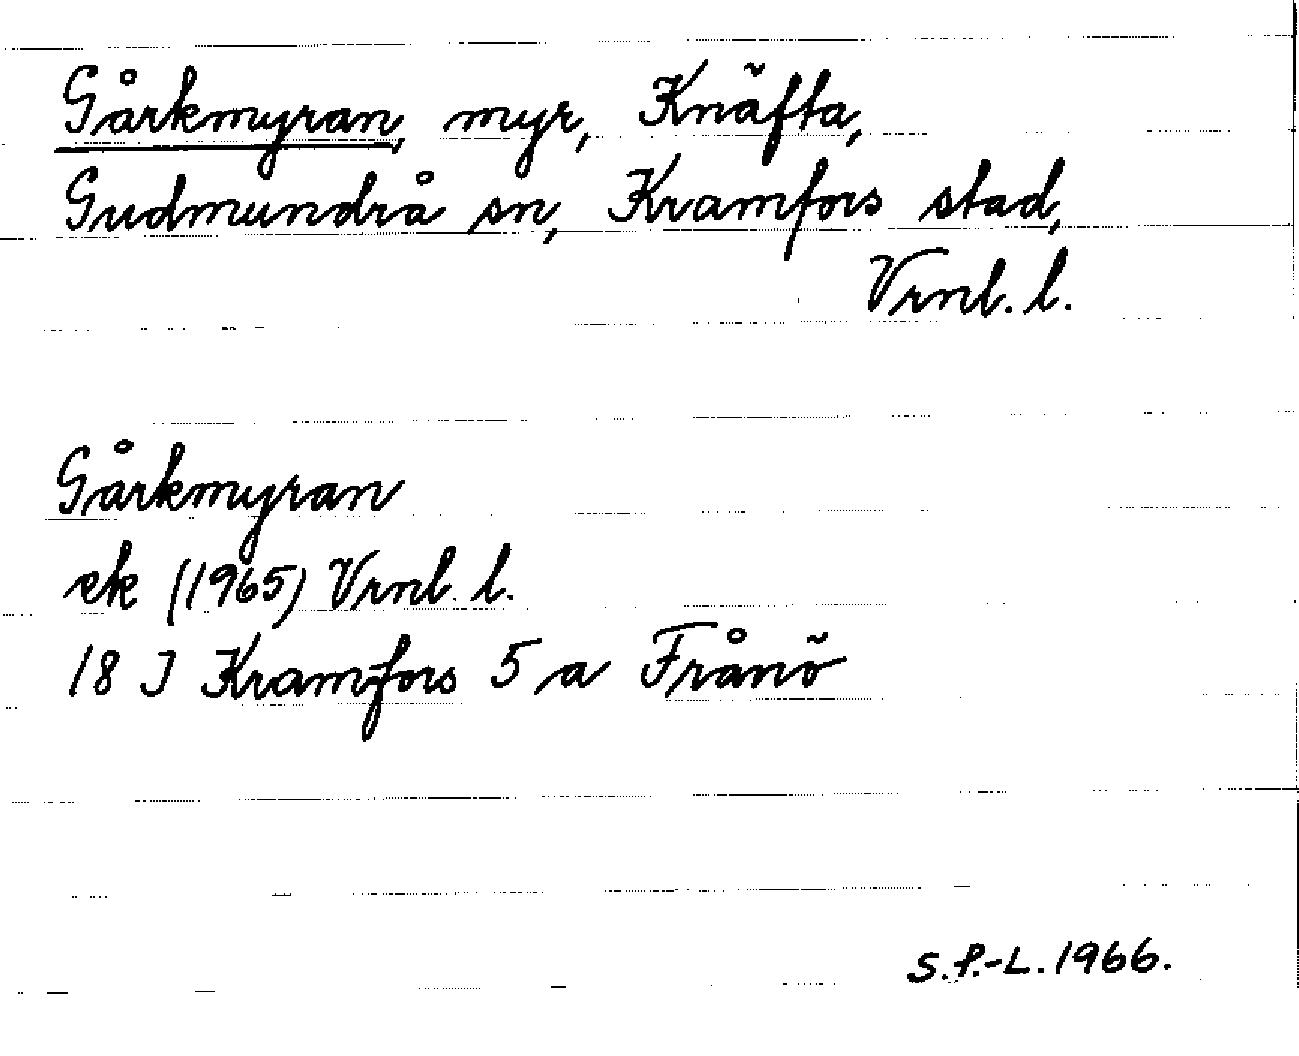 Gårkmyran, myr, Knäfta,
Gudmundrå sn, Kramfors stad,
Vrnl. l.
Gårkmyran
ek (1965) Vrnl. l.
18 J Kramfors 5 a Frånö
S.P.-L. 1966.